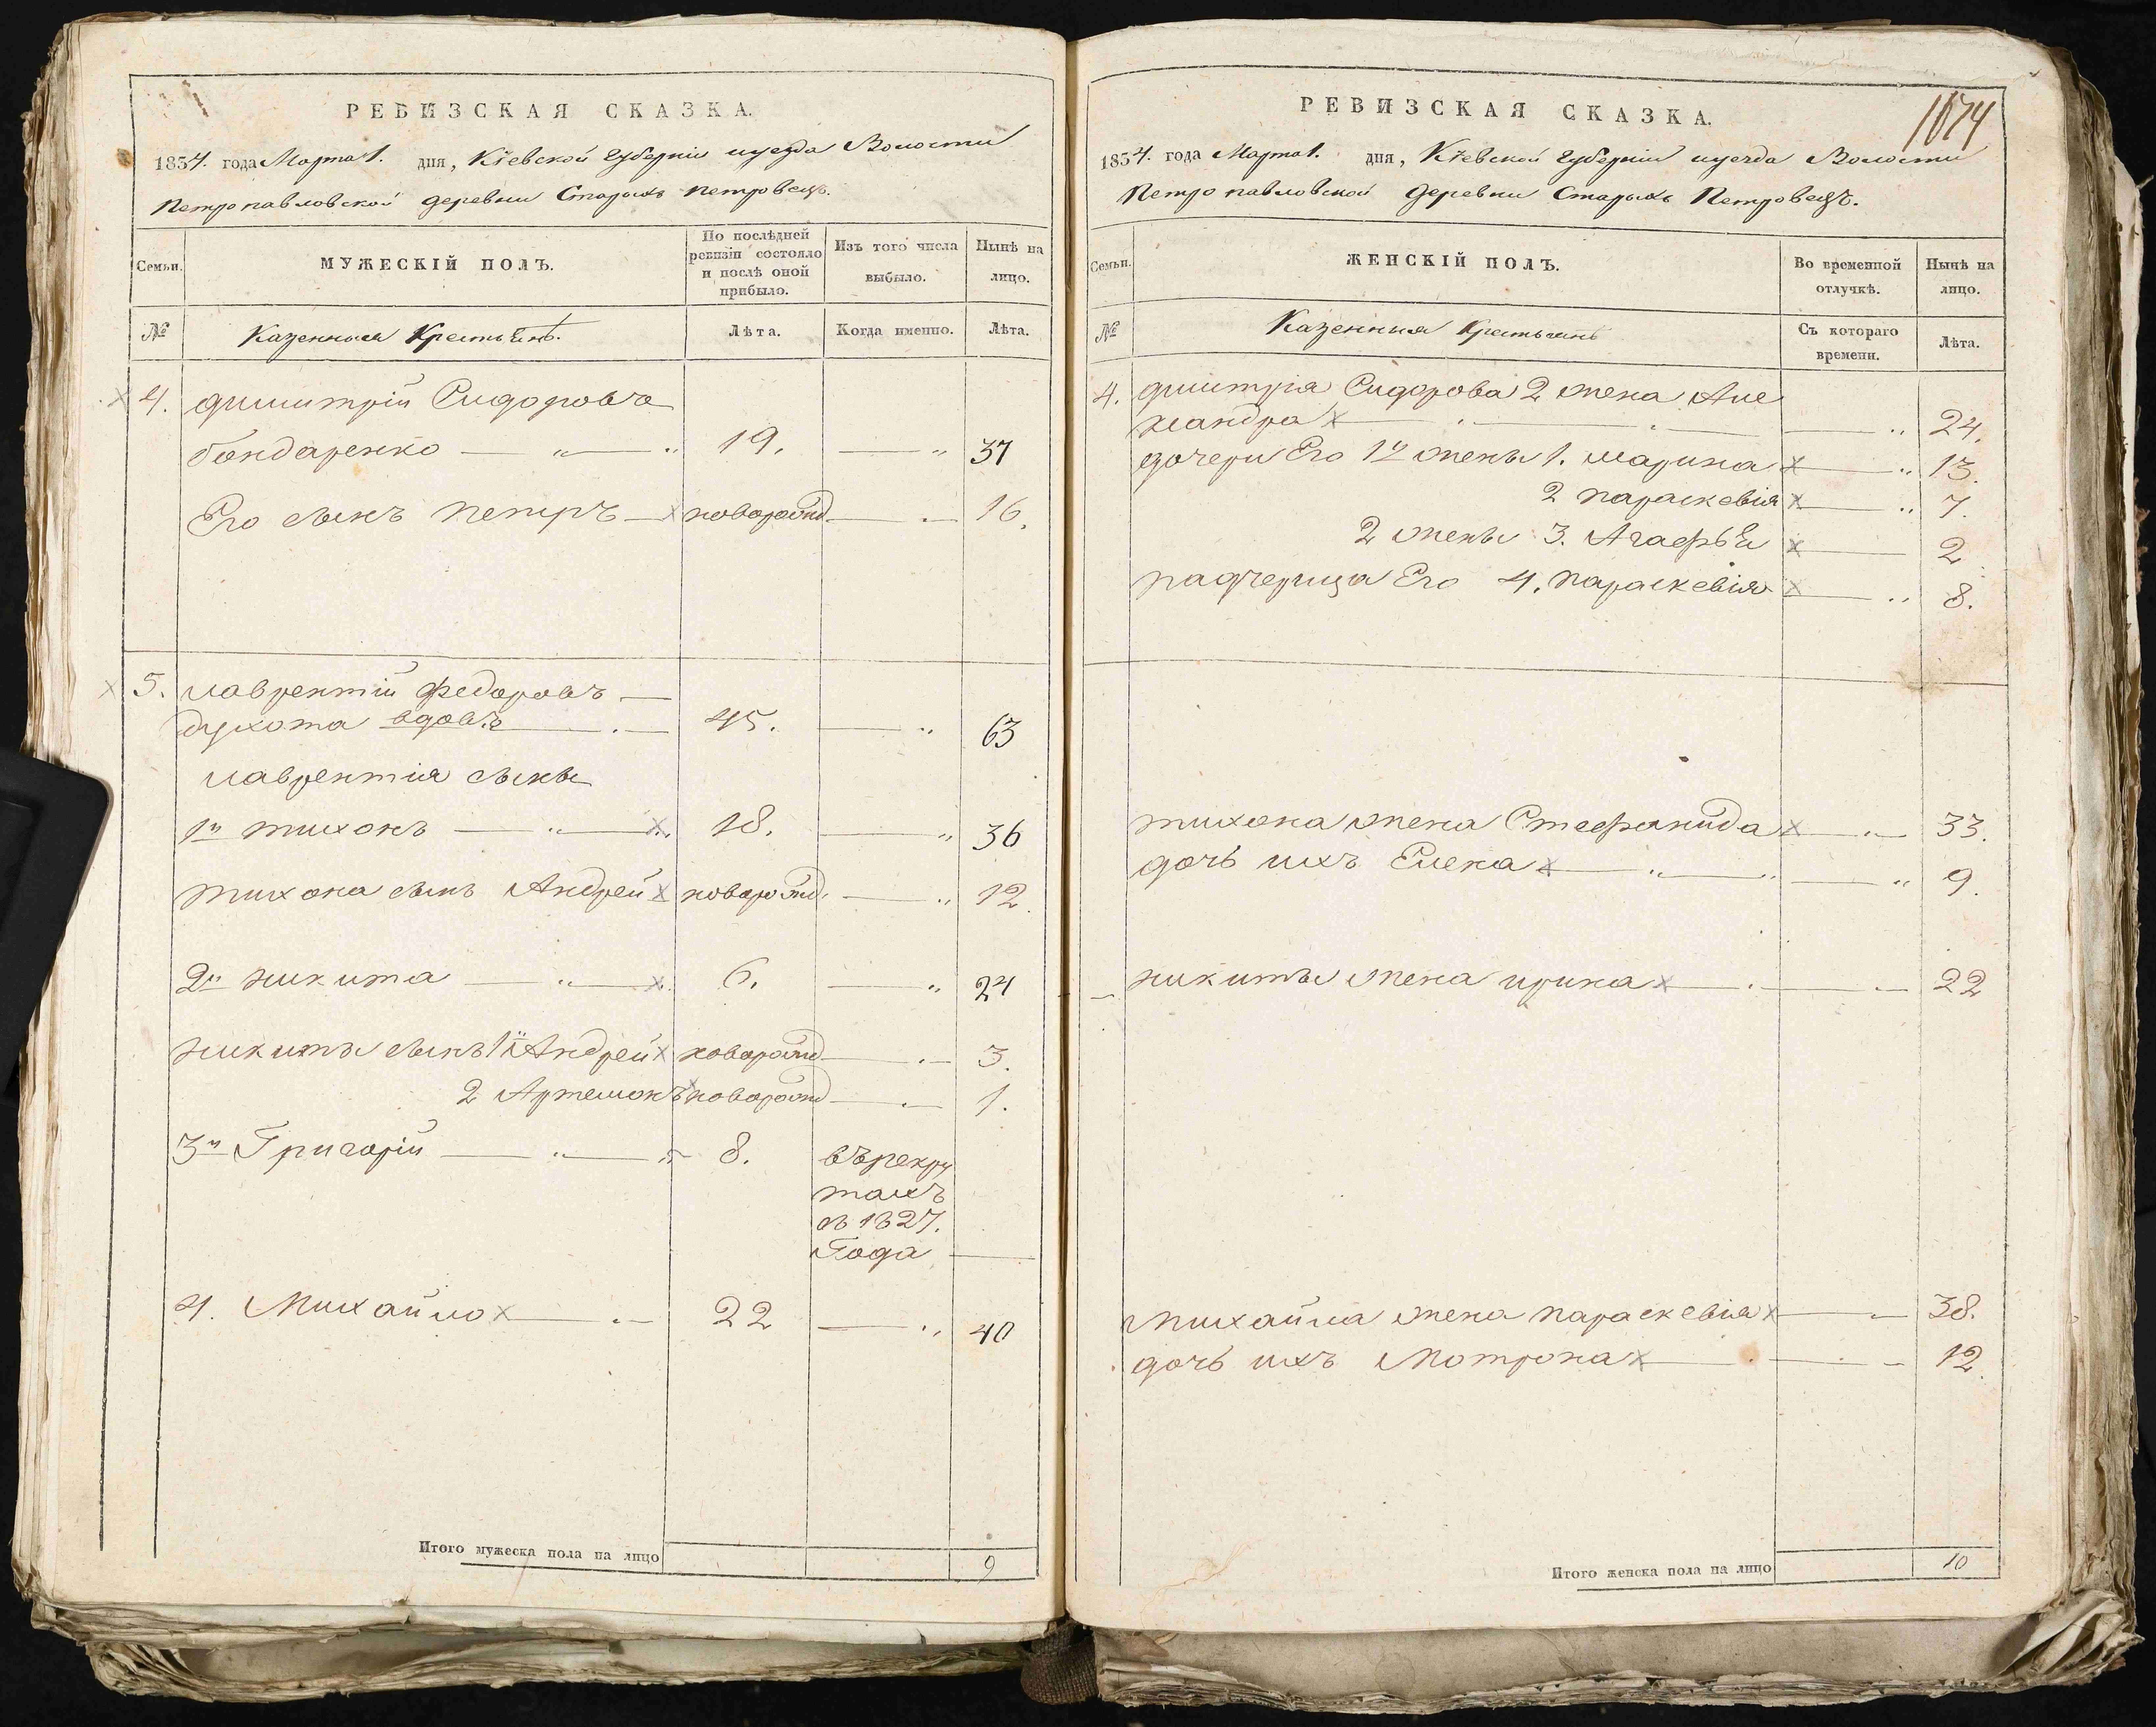 РЕВИЗСКАЯ СКАЗКА.
1834. года Марта 1. дня, Кіевской Губерніи уезда Волости
Петропавловской деревни Старыхъ Петровецъ.
Семьи.
МУЖЕСКІЙ ПОЛЪ.
По послѣдней ревизіи состояло и послѣ оной прибыло.
Изъ того числа выбыло.
Нынѣ на лицо.
№
Казенныя Крестьянѣ.
Лѣта.
Когда именно.
Лѣта.
4. Димитрій Сидоровъ
бондаренко 19. 37
Его сынъ петръ новорожд 16.
5. лаврентій федоровъ
вдовъ 45. 63
лаврентія сыны
1й тихонъ 18. 36
тихона сынъ Андрей новорожд. 12.
2й никита 6. 24
никиты сынъ 1й Андрей новорожд 3.
2 Артемонъ новорожд 1.
3й Григорій 8. въ рекру
тахъ
съ 1827.
Года
4. Михайло 22 40
Итого мужеска пола на лицо 9
1074
РЕВИЗСКАЯ СКАЗКА.
1834. года Марта 1. дня, Кіевской Губерніи уезда Волости
Петропавловской деревни Старыхъ Петровецъ.
Семьи.
ЖЕНСКІЙ ПОЛЪ.
Во временной отлучкѣ.
Нынѣ на лицо.
№
Казенныя Крестьянѣ
Съ котораго времени.
Лѣта.
4. Димитрія Сидорова 2 жена Але
ксандра 24.
дочери Его 1й жены 1. марина 13.
2 параскевія 7.
2 жены 3. Агафья 2
падчерица Его 4. параскевія 8.
тихона жена Стефанида 33.
дочь ихъ Елена 9.
никиты жена ирина 22
михайла жена параскевія 38.
дочь ихъ Мотрона 12.
Итого женска пола на лицо 10